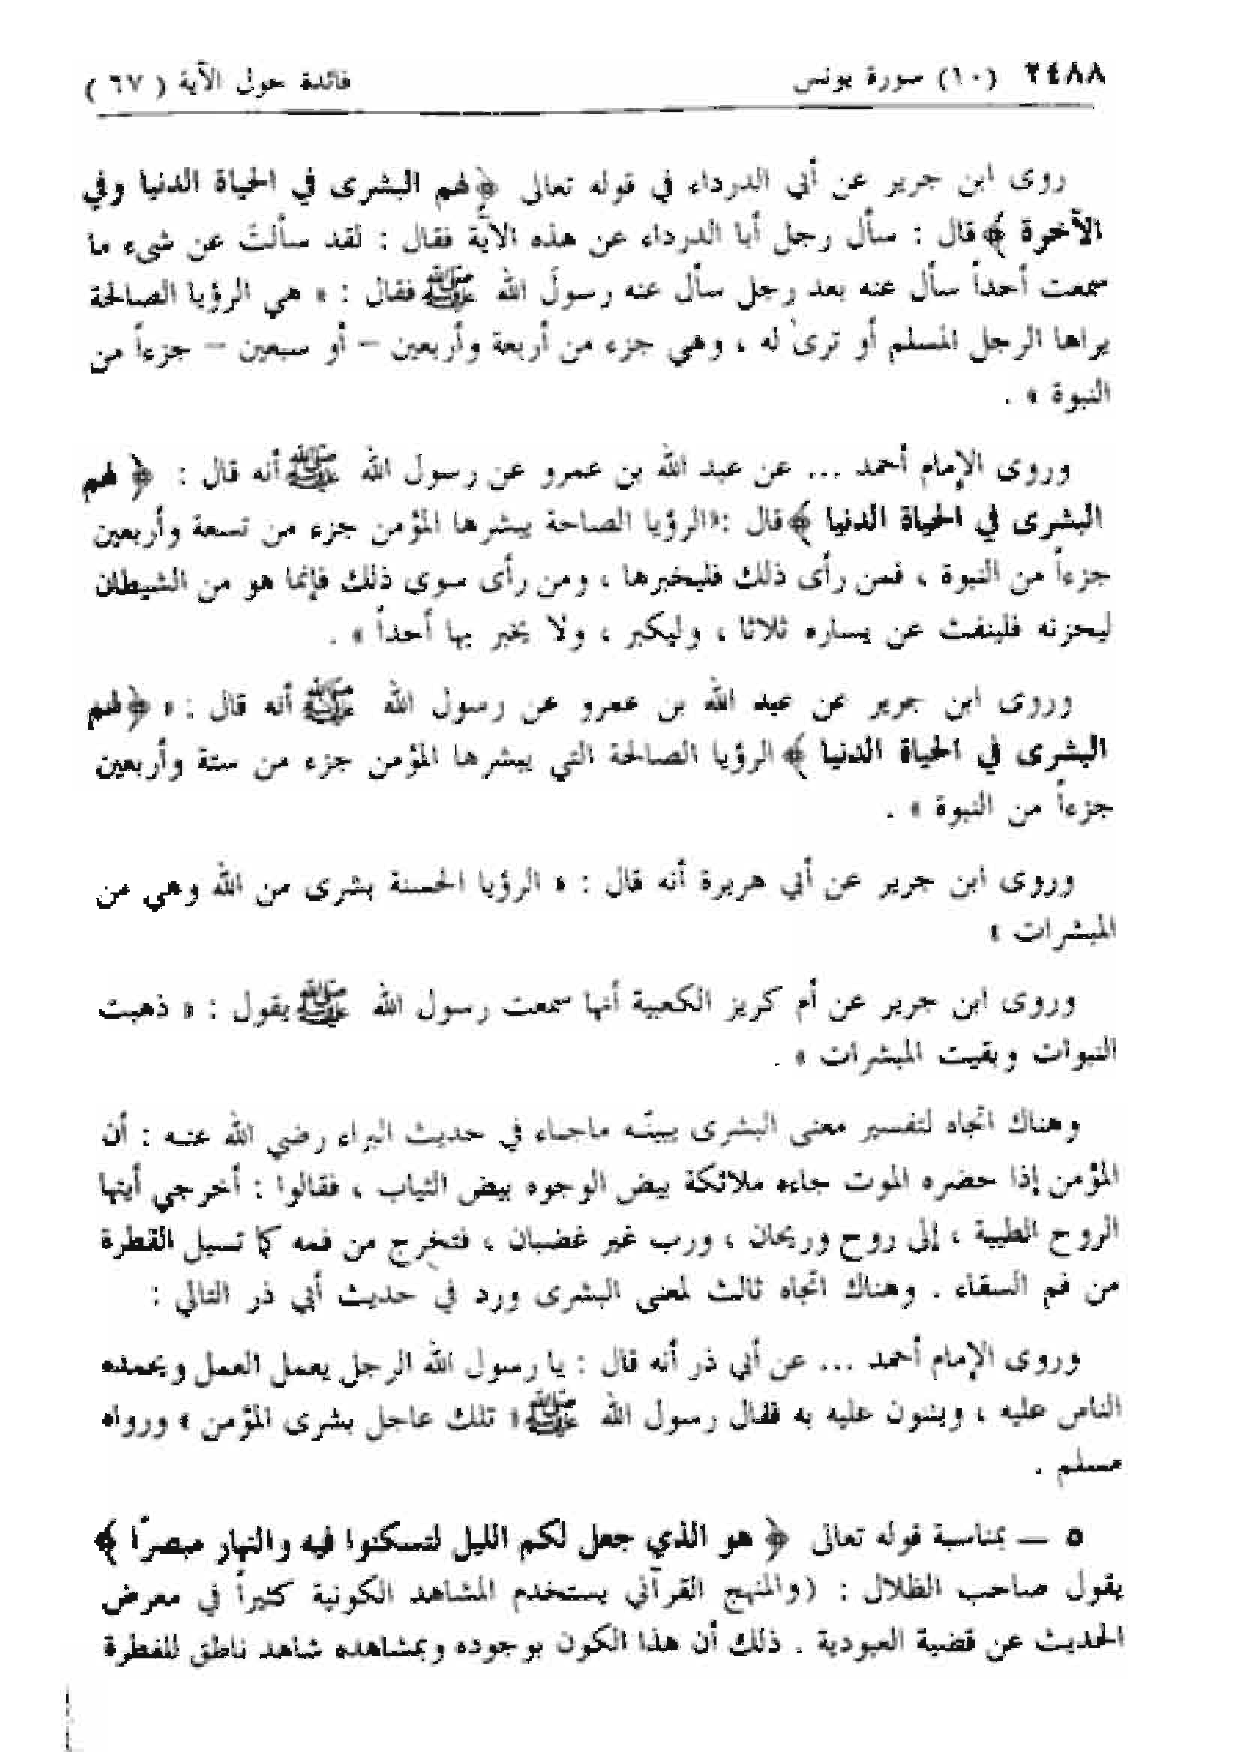 ٢٤٨٨ (١٠) سورة يونس فائدة حول الآية ( ٦٧ )
روى ابن جرير عن أبي الدرداء في قوله تعالى ﴿ لهم البشرى في الحياة الدنيا وفي
الآخرة ﴾ قال : سأل رجل أبا الدرداء عن هذه الآية فقال : لقد سألتَ عن شيء ما
سمعت أحداً سأل عنه بعد رجل سأل عنه رسولَ الله ﷺ فقال : « هي الرؤيا الصالحة
يراها الرجل المسلم أو ترىٰ له ، وهي جزء من أربعة وأربعين – أو سبعين – جزءاً من
النبوة » .
وروى الإمام أحمد ... عن عبد الله بن عمرو عن رسول الله ﷺ أنه قال : ﴿ لهم
البشرى في الحياة الدنيا ﴾ قال :«الرؤيا الصاحة يبشرها المؤمن جزء من تسعة وأربعين
جزءاً من النبوة ، فمن رأى ذلك فليخبرها ، ومن رأى سوى ذلك فإنما هو من الشيطان
ليحزنه فلينفث عن يساره ثلاثا ، وليكبر ، ولا يخبر بها أحداً » .
وروى ابن جرير عن عبد الله بن عمرو عن رسول الله ﷺ أنه قال : « ﴿ لهم
البشرى في الحياة الدنيا ﴾ الرؤيا الصالحة التي يبشرها المؤمن جزء من ستة وأربعين
جزءاً من النبوة » .
وروى ابن جرير عن أبي هريرة أنه قال : « الرؤيا الحسنة بشرى من الله وهي من
المبشرات »
وروى ابن جرير عن أم كريز الكعبية أنها سمعت رسول الله ﷺ يقول : « ذهبت
النبوات وبقيت المبشرات » .
وهناك اتجاه لتفسير معنى البشرى يبينّه ماجاء في حديث البراء رضي الله عنه : أن
المؤمن إذا حضره الموت جاءه ملائكة بيض الوجوه بيض الثياب ، فقالوا : أخرجي أيتها
الروح الطيبة ، إلى روح وريحان ، ورب غير غضبان ، فتخرج من فمه كما تسيل القطرة
من فم السقاء . وهناك اتجاه ثالث لمعنى البشرى ورد في حديث أبي ذر التالي :
وروى الإمام أحمد ... عن أبي ذر أنه قال : يا رسول الله الرجل يعمل العمل ويحمده
الناس عليه ، ويثنون عليه به فقال رسول الله ﷺ « تلك عاجل بشرى المؤمن » ورواه
مسلم .
٥ – بمناسبة قوله تعالى ﴿ هو الذي جعل لكم الليل لتسكنوا فيه والنهار مبصرًا ﴾
يقول صاحب الظلال : (والمنهج القرآني يستخدم المشاهد الكونية كثيراً في معرض
الحديث عن قضية العبودية . ذلك أن هذا الكون بوجوده وبمشاهده شاهد ناطق للفطرة